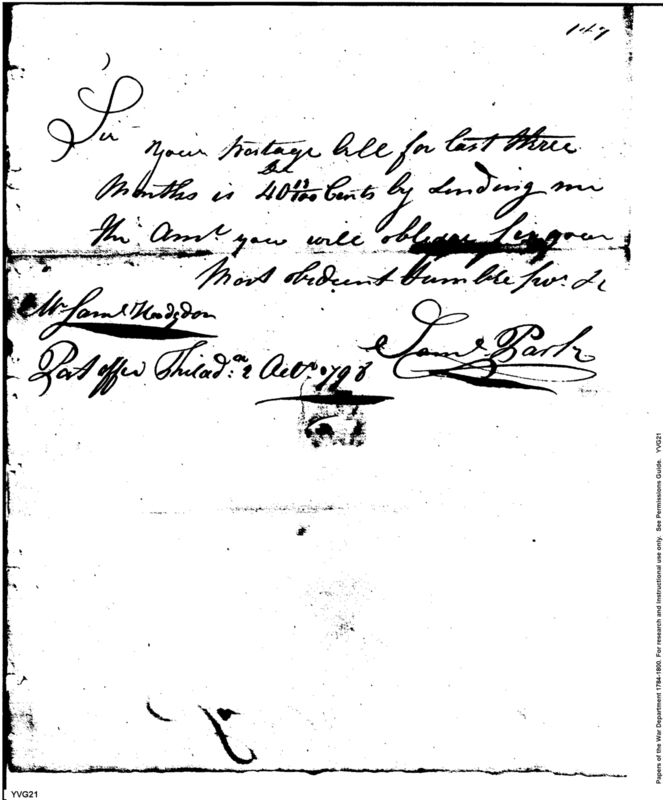 147
Sir
Your Postage bill for last three
Months is 40 13/100 Cents by sending me
the Amt. you will oblige Sir your
Most obedient humble Sevt. &c
Mr Saml. Hodgdon
Post office Philada. 2 Octr. 1793
YVG21
Papers of the War Department 1784-1800. For research and instructional use only. See Permissions Guide. YVG21